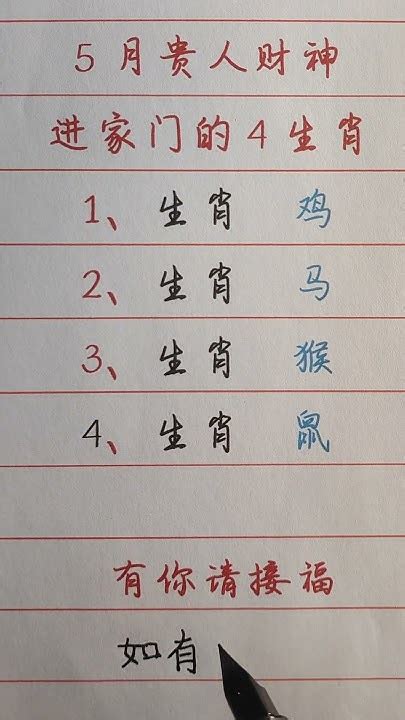 5月贵人财神
进家门的4生肖
1、生肖 鸡
2、生肖 马
3、生肖 猴
4、生肖 鼠
有你请接福
如有